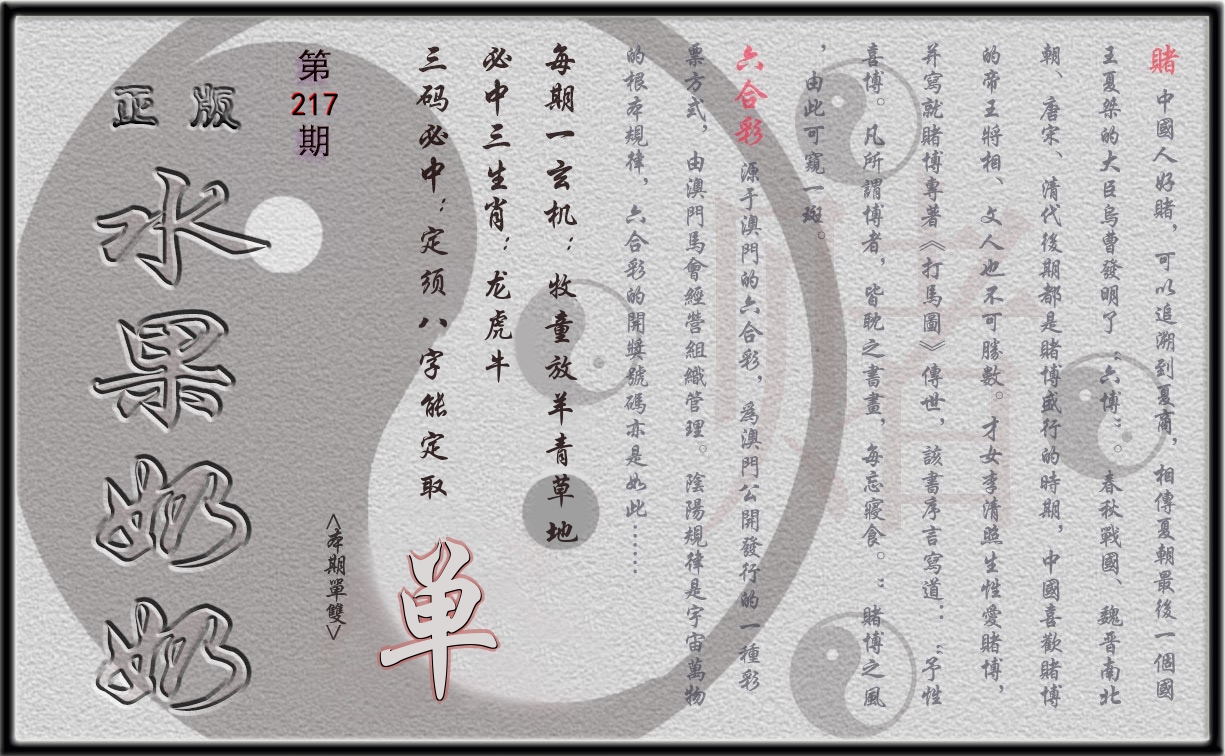 賭 中國人好賭，可以追溯到夏商，相傳夏朝最後一個國
王夏桀的大臣烏曹發明了“六博”。春秋戰國、魏晋南北
朝、唐宋、清代後期都是賭博盛行的時期，中國喜歡賭博
的帝王將相、文人也不可勝數。才女李清照生性愛賭博，
并寫就賭博專著《打馬圖》傳世，該書序言寫道：“予性
喜博。凡所謂博者，皆耽之書畫，每忘寢食。：賭博之風
，由此可窺一斑。
六合彩 源于澳門的六合彩，為澳門公開發行的一種彩
票方式，由澳門馬會經營組織管理。陰陽規律是宇宙萬物
的根本規律，六合彩的開獎號碼亦是如此……
每期一玄机：牧童放羊青草地
必中三生肖：龙虎牛
三码必中：定须八字能定取
<本期單雙>
单
第
217
期
正版
水果奶奶